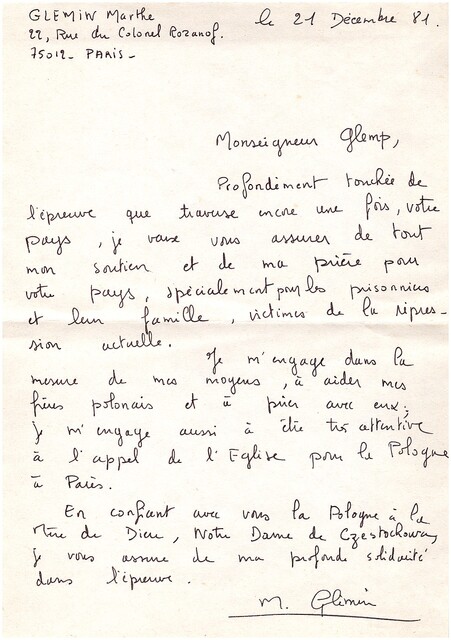 GLEMIN Marthe
22, Rue du Colonel Rozanof.
75012 - PARIS -
le 21 Décembre 81.
Monseigneur Glemp,
Profondément touchée de
l'épreuve que traverse encore une fois, votre
pays, je veux vous assurer de tout
mon soutien et de ma prière pour
votre pays, spécialement pour les prisonniers
et leur famille, victimes de la répres-
sion actuelle.
Je m'engage dans la
mesure de mes moyens, à aider mes
frères polonais et à prier avec eux ;
je m'engage aussi à être très attentive
à l'appel de l'Eglise pour la Pologne
à Paris.
En confiant avec vous la Pologne à la
Mère de Dieu, Notre Dame de Czestochowa,
je vous assure de ma profonde solidarité
dans l'épreuve.
M. Glemin